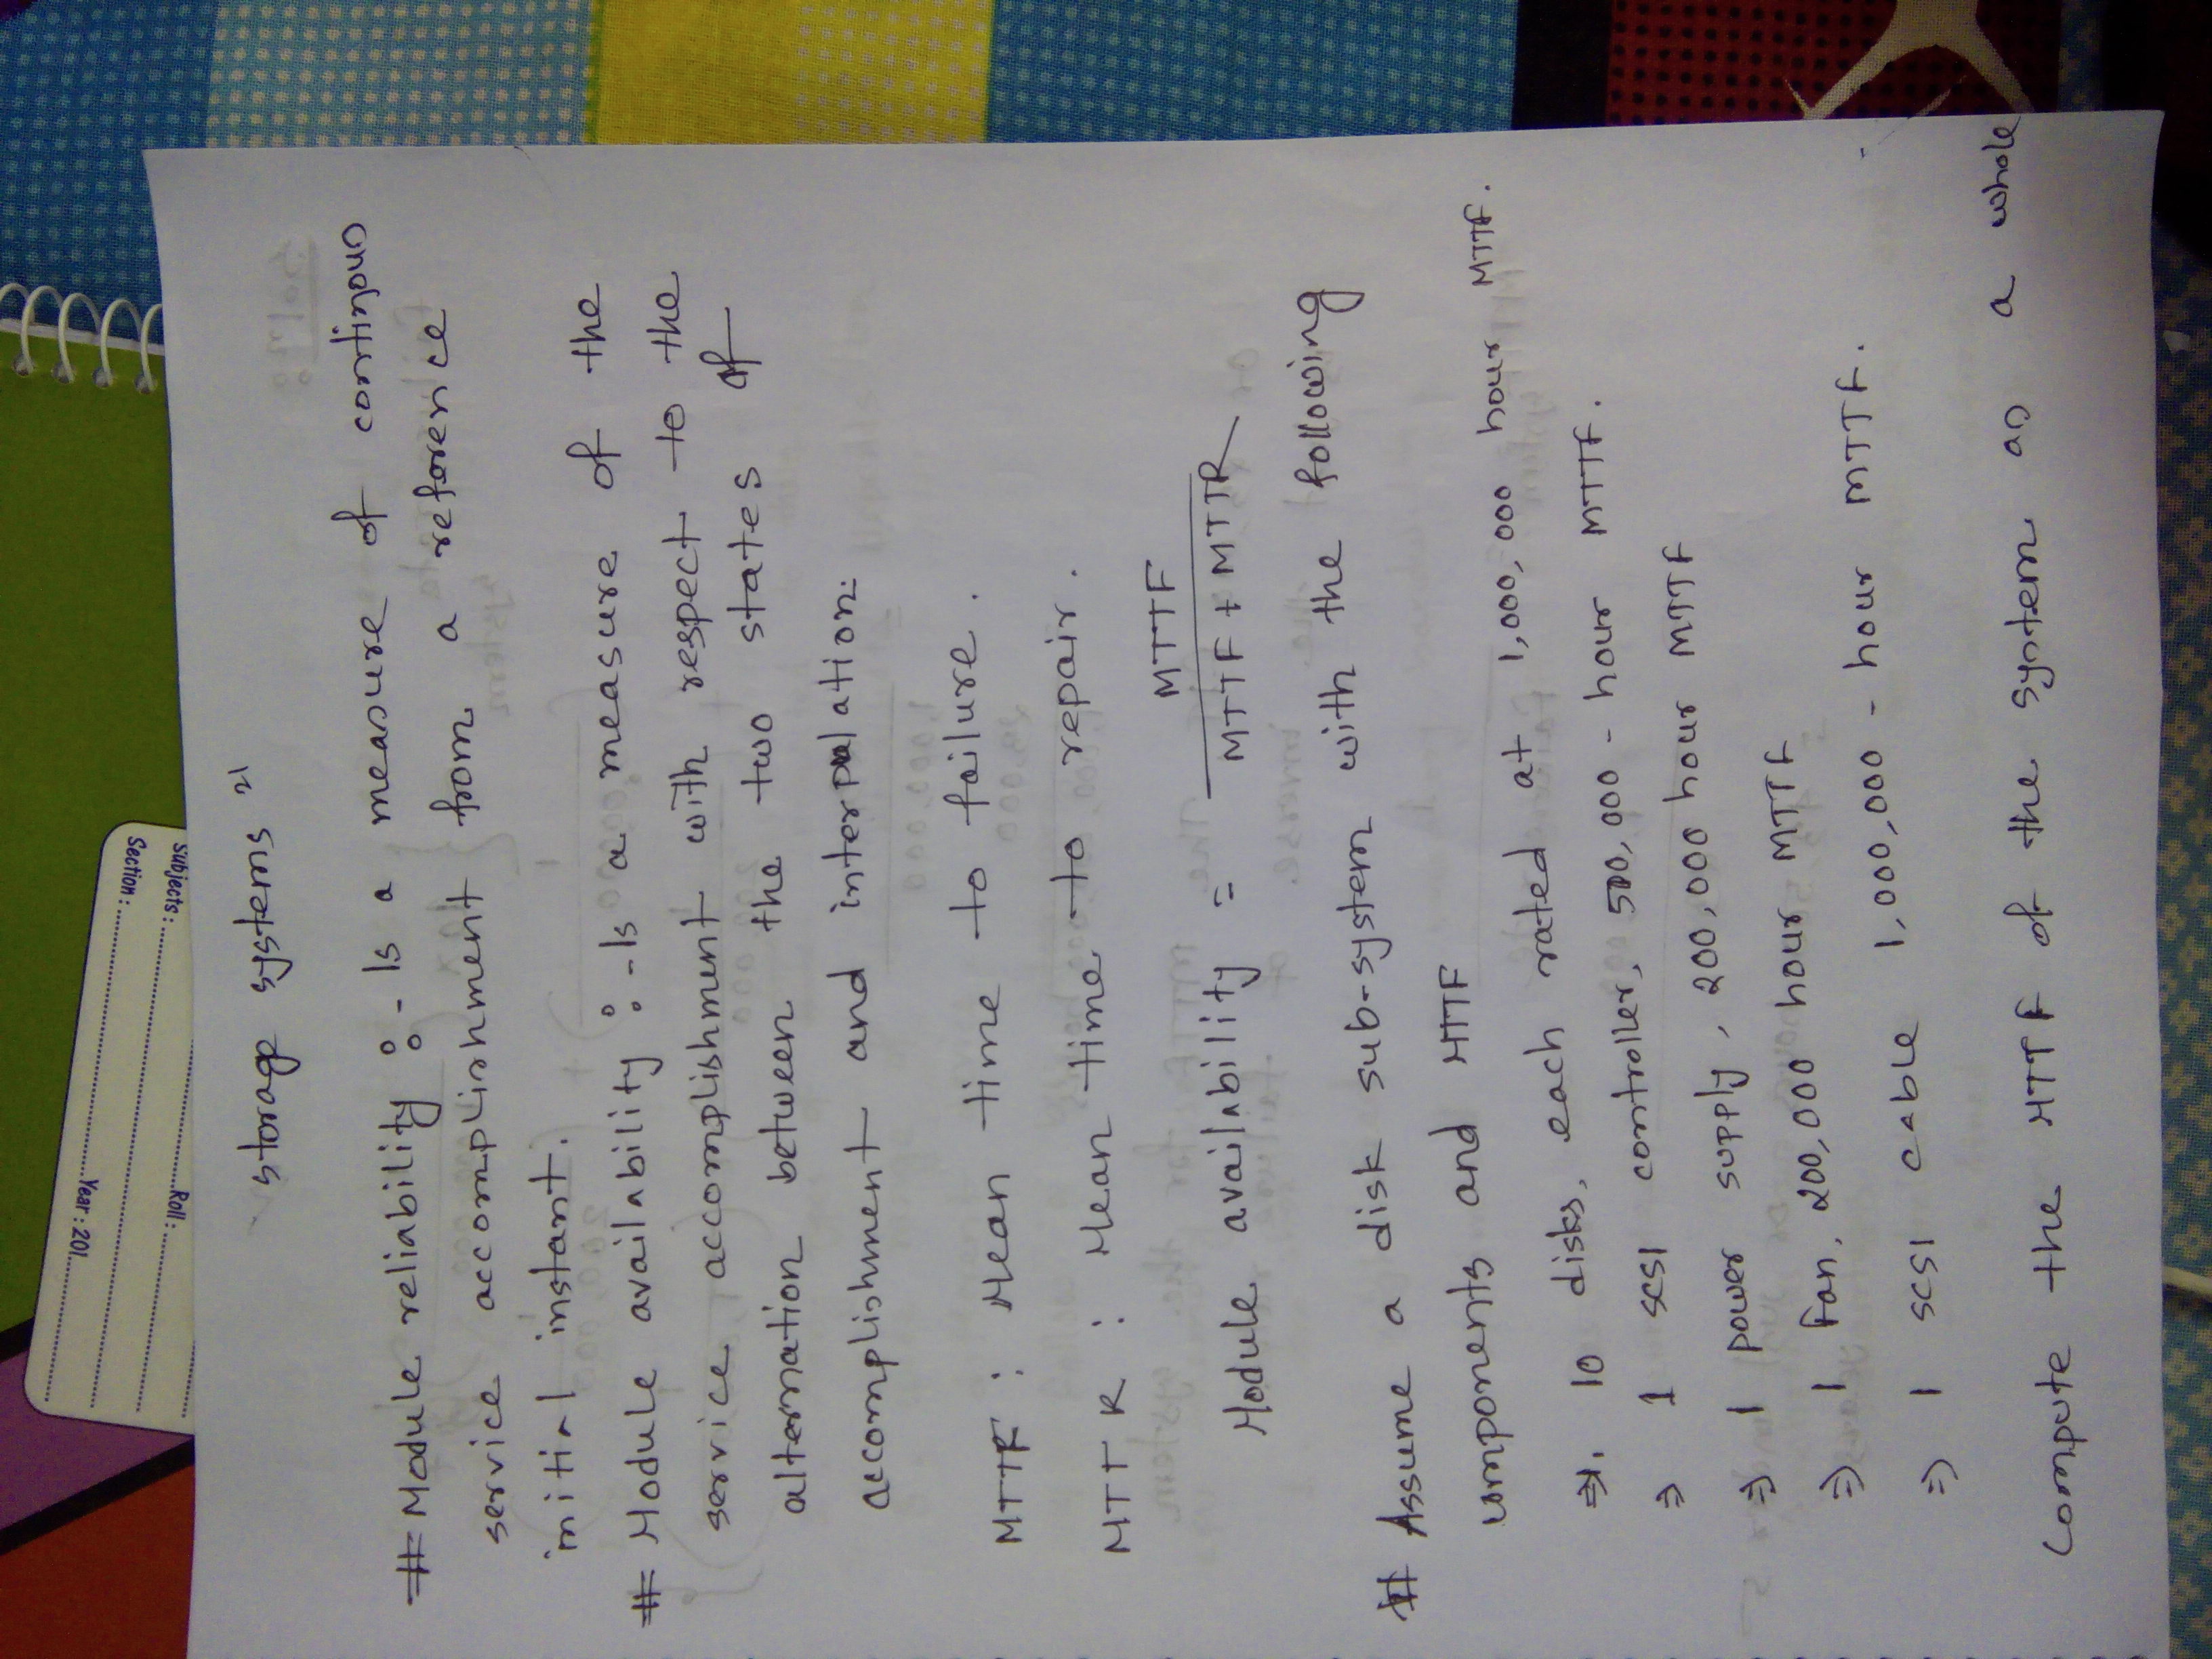 Year : 201
Section :
Roll :
Subjects :
storage systems 21
# Module reliability :- Is a measure of continous
service accomplishment from a reference
initial instant.
# Module availability :- Is a measure of the
service accomplishment with respect to the
alternation between the two states of
accomplishment and interpulation.
MTTF : Mean time to failure.
MTTR : Mean time to repair.
MTTF
Module availability = 
MTTF + MTTR
# Assume a disk sub-system with the following
components and MTTF
⇒. 10 disks, each rated at 1,000,000 hour MTTF.
⇒ 1 SCSI controller, 500,000 - hour MTTF.
⇒ 1 power supply, 200,000 hour MTTF
⇒ 1 Fan, 200,000 hour MTTF
⇒ 1 SCSI cable 1,000,000 - hour MTTF.
Compute the MTTF of the system as a whole